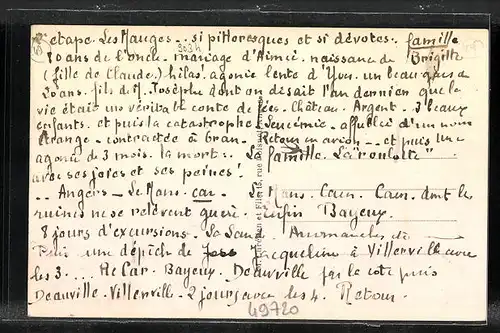 2e étape. Les Mauges.. si pittoresques et si dévotes.. famille
80 ans de l'oncle. mariage d'Aimée. naissance de Brigitte
(fille de Claude.) hélas! agonie lente d'Yvon. un beau gars de
20 ans. fils de Josèphe dont on disait l'an dernier que la
vie était un véritable conte de fées. château. Argent. 3 beaux
enfants. et puis la catastrophe. Leucémie. affublée d'un nom
étrange. contractée à Oran. Retour en avion... et puis une
agonie de 3 mois. la mort.. La famille "La roulotte"
avec ses joies et ses peines!
.. Angers _ Le Mans. car. Le Mans. Caen. Caen dont les
ruines ne se relèvent guère. enfin Bayeux
8 jours d'excursions. Avranches
une dépêche de Jacqueline à Villerville avec
les 3.... Re Car. Bayeux. Deauville par la côte puis
Deauville. Villerville. 2 jours avec les 4. Retour.
49720